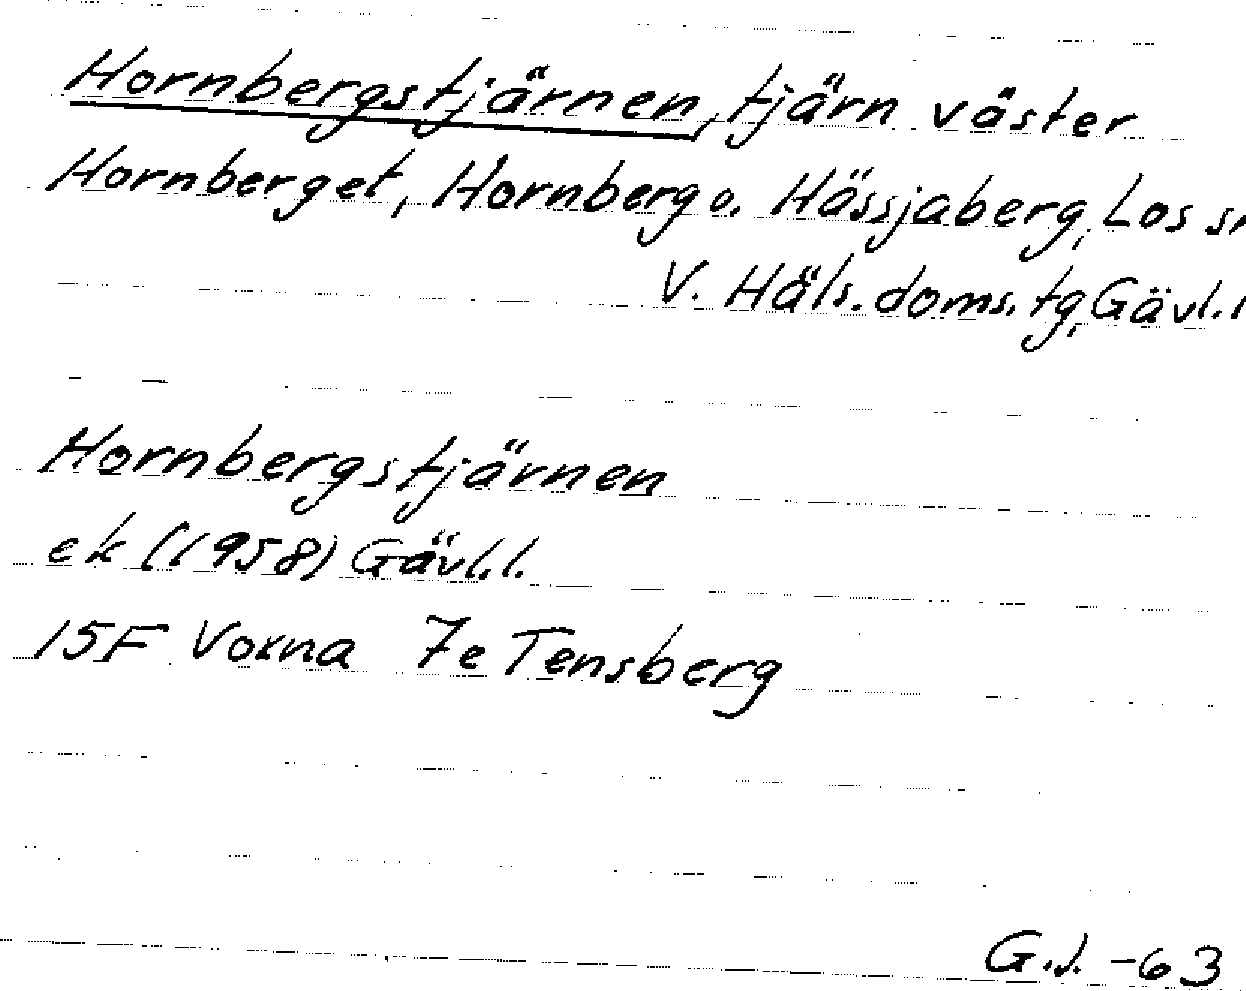 Hornbergstjärnen, tjärn väster
Hornberget, Hornberg o. Hässjaberg, Los
V. Häls. doms. tg, Gävl.
Hornbergstjärnen
ek (1958) Gävl.l.
15F Voxna 7e Tensberg
G.J. -63